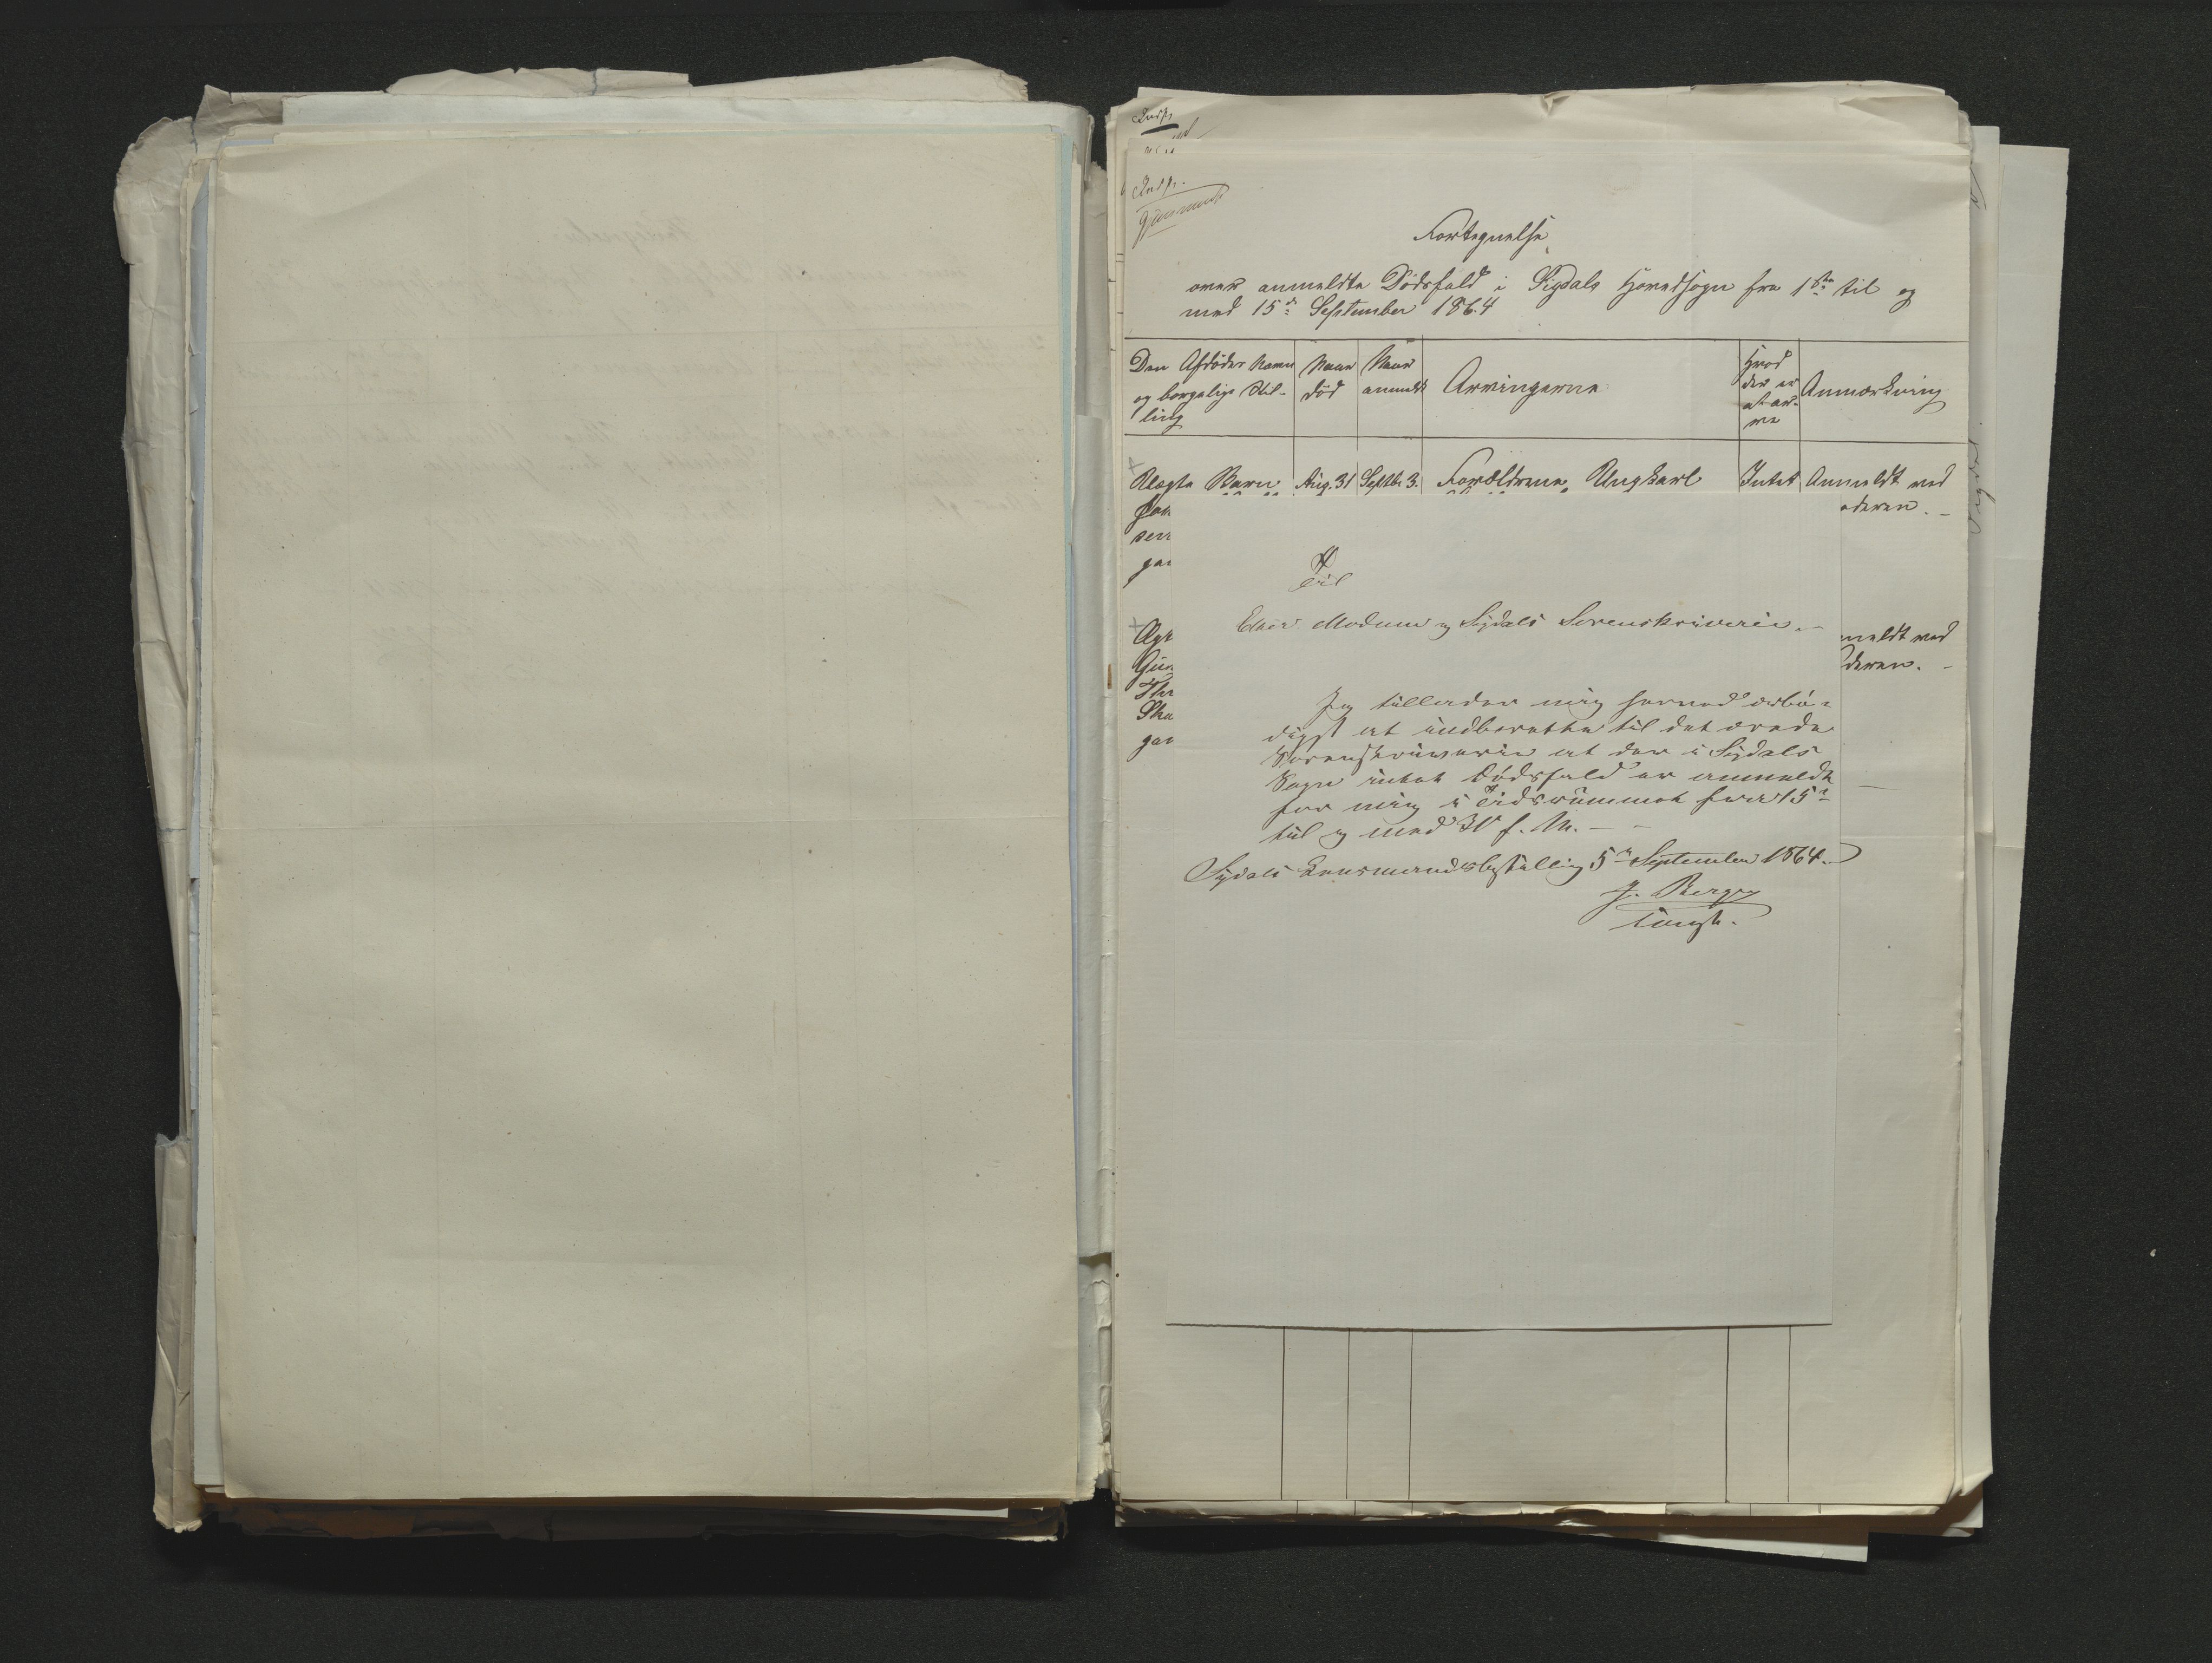 Indf.
Indf.
Fortegnelse
over anmeldte Dödsfald i Sigdals Hovedsogn fra 1ste til og
med 15de September 1864
Den Afdödes Navn
og borgelige Stil-
ling
Naar
död
Naar
anmeldt
Arvingerne
Hvad
der er
at ar-
ve
Anmærkning
Uægte Barn
Aug. 31
Septbr 3.
Forældrene, Ungkarl
Intet
Anmeldt ved
oderen. -
sen
gaa
meldt ved
deren. -
Gun
Ska
gaa
Til
Eker Modum og Sigdals Sorenskriveri. -
Jeg tillader mig herved ærbö-
digst at indberette til det ærede
Sorenskriveri at der i Sigdals
Sogn intet Dödsfald er anmeldt
for mig i Tidsrummet fra 15de
til og med 31 f. M. -
Sigdals Lensmandsbestilling 5te September 1864.
J. Berg
const.